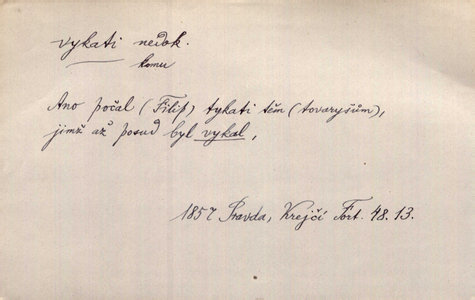 vykati nedok.
komu
Ano počal (Filip) tykati těm (tovaryšům),
jimž až posud byl vykal,
1857 Pravda, Krejčí Fort. 48. 13.